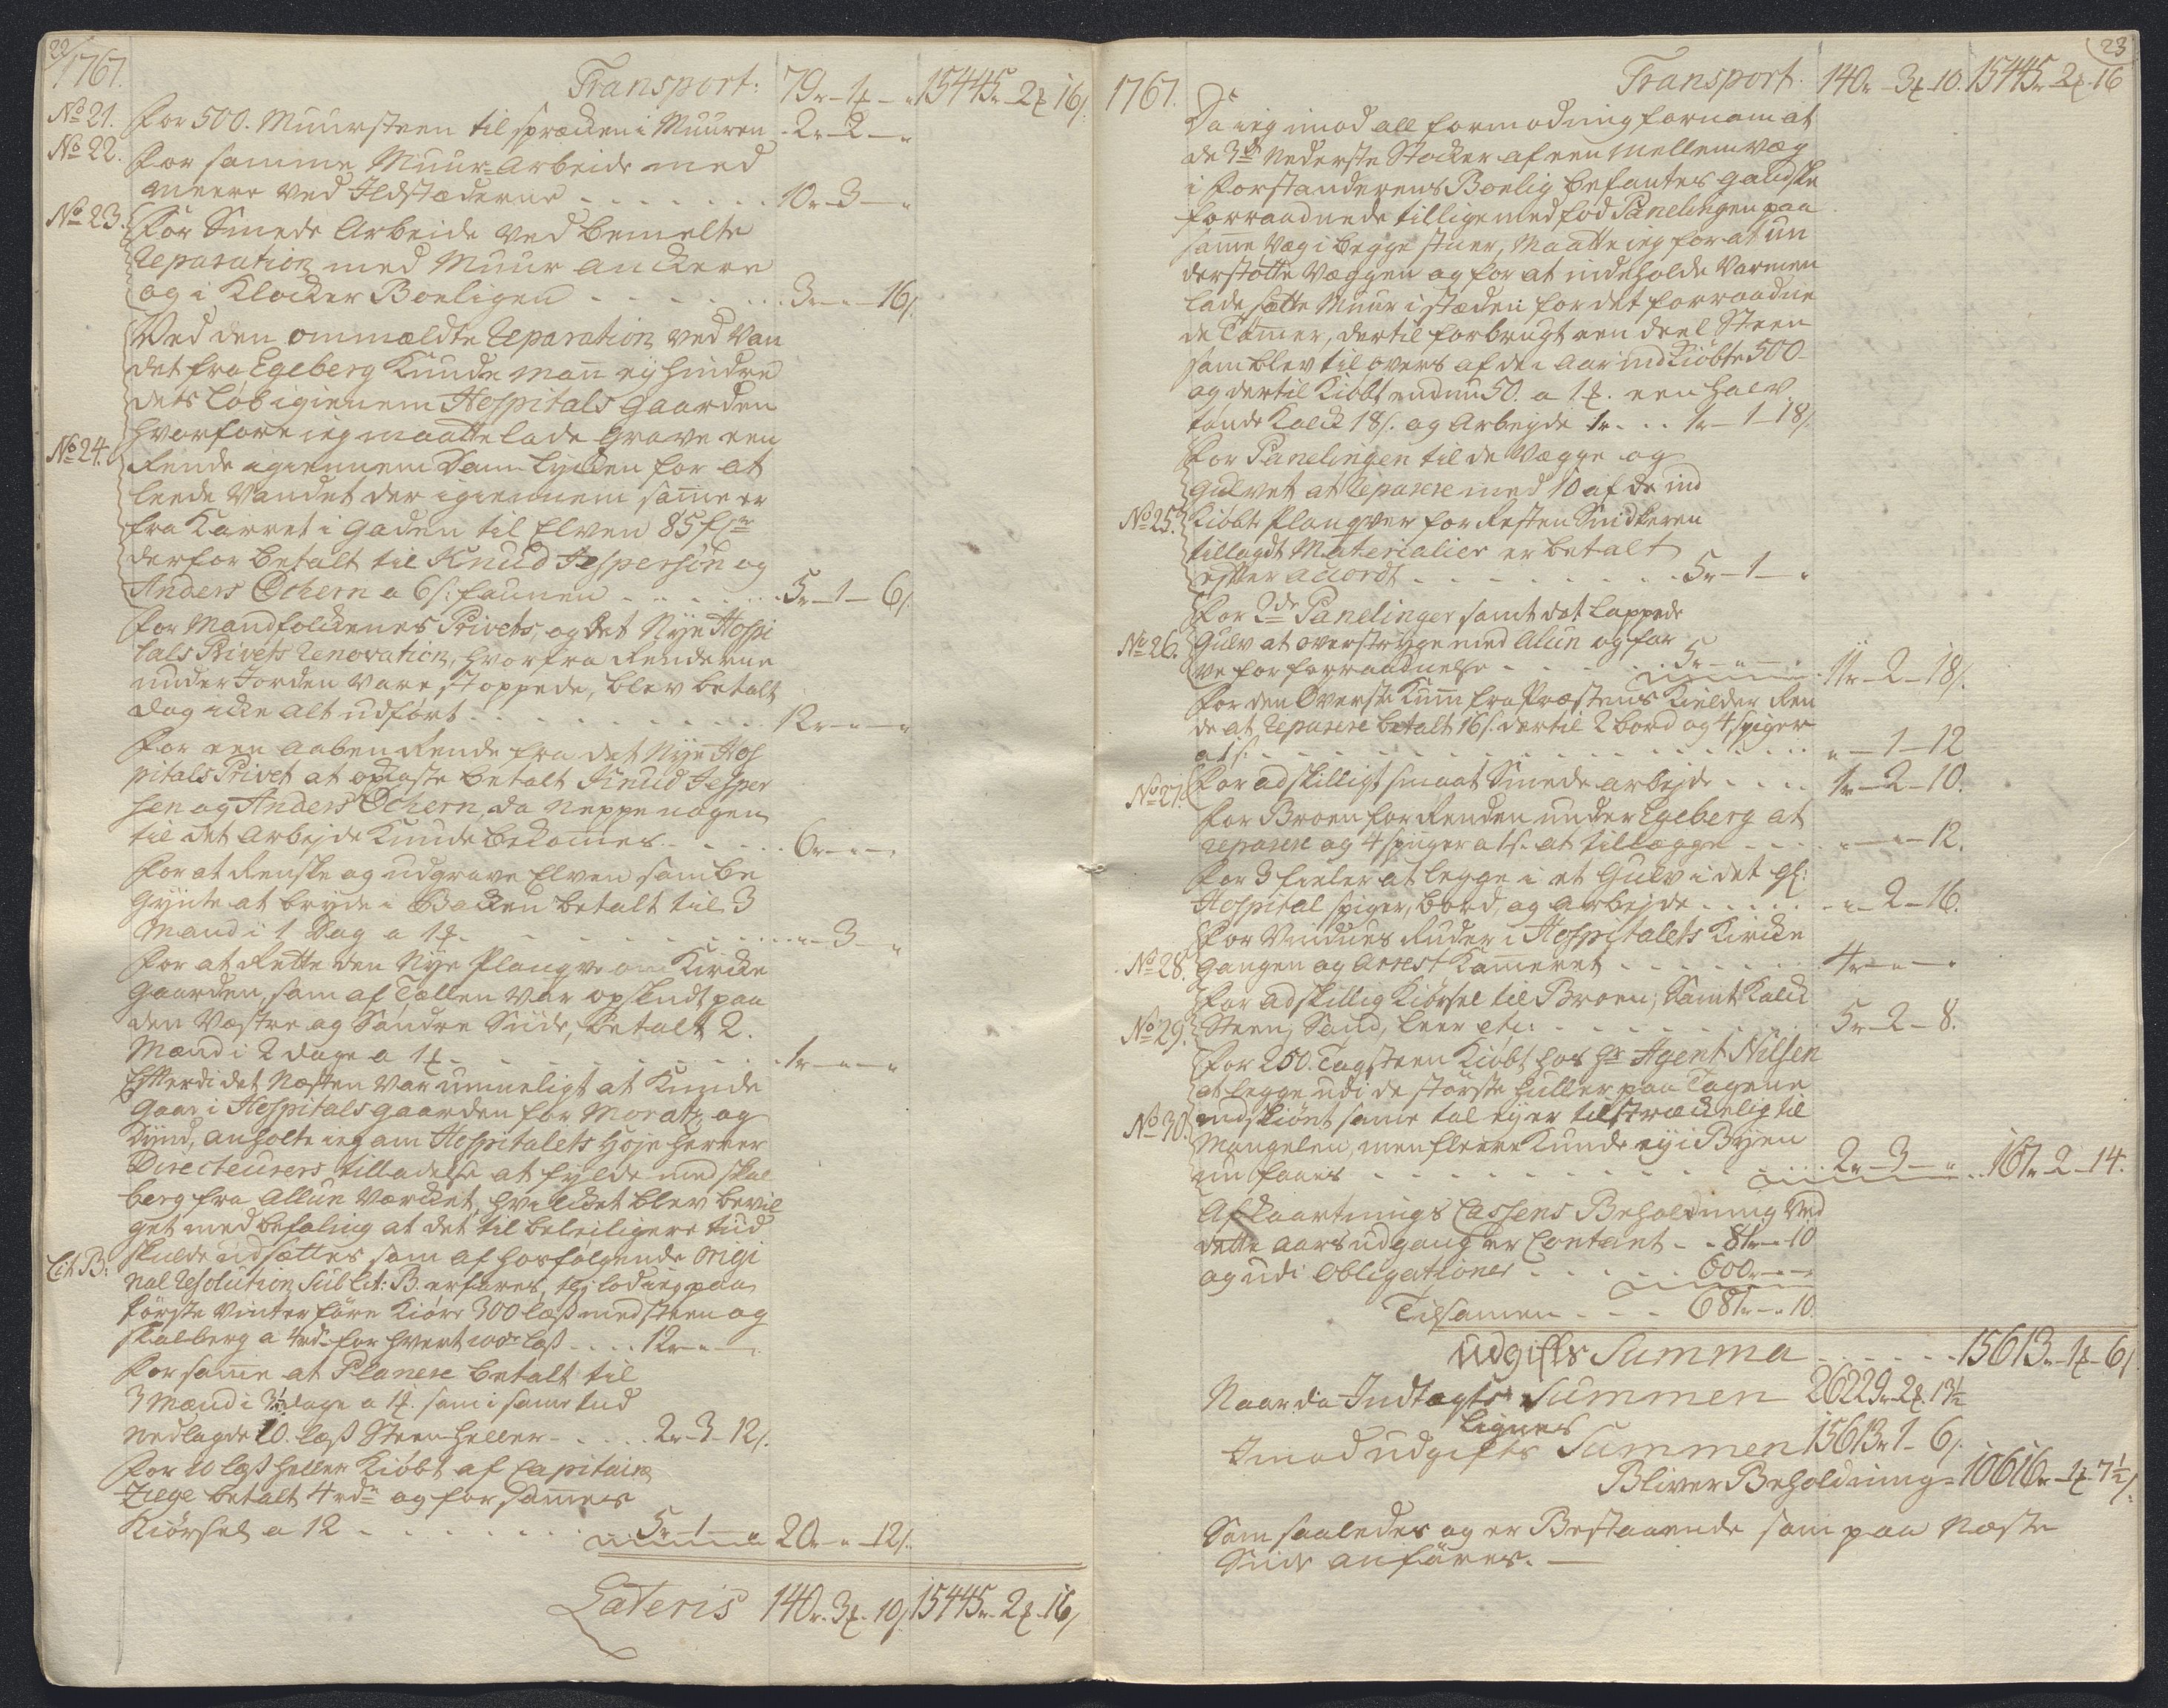 22
1767.
Transport: 79r-1ȝ-" 15445r-2ȝ 16s
No 21. For 500. Muursteen til sprækken i Muuren 2r-2-"
No 22. For samme Muur-Arbeide med
meere ved Ildstæderne 10r-3-"
No 23. For Smede Arbeide ved bemelte
Reparation med Muur Anckere
og i Klocker Boeligen 3r-"-16s
Ved den ommældte Reparation ved Van
det fra Egeberg Kunde man ey hindre
dets løb igienem Hospitals Gaarden
hvorfore ieg maatte lade grave een
No 24. Rende igiennem Dam-Lycken for at
leede Vandet der igiennem samme er
fra Karret i Gaden til Elven 85 f
derfor betalt til Knud Jespersøn og
Anders Ochern a 6s: faunen 5r-1-6s
For Mandfolckenes Privets, og det Nye Hospi
tals Privets Renovation, hvorfra Renderne
under Jorden vare stoppede, blev betalt
dog icke alt udført 12r-"-"
For een aaben Rende fra det Nye Hos
pitals Privet at opkaste betalt Knud Jesper
sen og Anders Ochern, da neppe nogen
til det Arbejde Kunde bekomes 6r-"-"
For at Renske og udgrave Elven som be
gynte at bryde i Backen betalt til 3
Mand i 1 Dag a 1ȝ "-3-"
For at Rette den Nye Plangve om Kircke
Gaarden, som af Tællen var opskudt paa
den Vestre og Søndre Siide, betalt 2.
Mænd i 2 dage a 1ȝ 1r-"-"
Efterdi det Næsten var umueligt at Kunde
gaae i Hospitals gaarden for Moratz og
Dynd, anholte ieg om Hospitalets Høje Herrer
Directeurers tilladelse at fylde med skal
berg fra Allun Værcket, hvilcket blev bevil
get med befaling at det til beleiligere tiid
Lit B: skulde udsættes som af hosfølgende origi
nal Resolution sub Lit: B. erfares, thj lod ieg paa
første Vinterføre Kiøre 300 læss med steen og
skalberg a 4rd for hvert 100de læs 12r-"-"
For samme at Planere betalt til
3 Mænd i 3½ dage a 1ȝ. som i samme tiid
nedlagde 10. læs Steen-heller 2r-3-12s
For 10 læs heller Kiøbt af Capitain
Ziege betalt 4rdr og for sammes
Kiørsel a 12 5r-1-" 20r-"-12s
Lateris 140r-3ȝ-10s 15445r-2ȝ-16s
23
1767.
Transport. 140r-3ȝ-10. 15445r-2ȝ-16
Da ieg imod all formodning fornam at
de 3de Nederste Stocker af een mellemvæg
i Forstanderens Boelig befantes gandske
forraadnede tillige med fod Panelingen paa
samme væg i begge stuer, Maatte ieg for at un
derstøtte Væggen og for at indeholde Varmen
lade sætte Muur i stæden for det forraadne
de Tømmer, dertil forbrugt een deel Steen
som blev til overs af de i aar indkiøbte 500-
og dertil Kiøbt endnu 50. a 1ȝ. een halv
tønde Kalck 18s. og Arbejde 1r 1r-1-18s
For Panelingen til de Vægge og
Gulvet at Reparere med 10 af de ind
No 25. kiøbte Planqver for Resten Snidkeren
tillagdt Materialier er betalt
efter accordt 5r-1-"
For 2de Panelinger samt det Lappede
No 26. Gulv at overstryge med Alun og far
ve for forraadnelse 5r-"-" 11r-2-18s.
For den Øverste Kum fra Præstens Kielder Ren
de at Reparere betalt 16s. dertil 2 bord og 4 spiger
a 1s "-1-12
No 27. For adskilligt smaat Smede arbejde 1r-2-10.
For Broen for Renden under Egeberg at
reparere og 4 spiiger a 1s. at tillægge "-"-12.
For 3 fieler at legge i et Gulv i det gl:
Hospital spiger, bord, og arbejde "-2-16.
For Vindues Ruder i Hospitalets Kircke
No 28. Gangen og Arrest Kammeret 4r-"-"
For adskillig Kiørsel til Broen, samt Kalck
No 29. Steen, Sand, leer etc: 5r-2-8.
For 250. Tagsteen Kiøbt hos Hr Agent Nilsen
at legge udi de største huller paa Tagene
No 30. endskiønt samme tal ey er tilstreckelig til
Mangelen, men fleere Kunde ey i Byen
nu faaes 2r-3-" 167r-2-14.
Afkaartnings Cassens Beholdning ved
dette aars udgang er Contant 81r-"-10
og udi Obligationer 600r-"-"
Tilsamen 681r-"-10.
Udgifts Summa 15613r-1ȝ-6s
Naar da Indtægts Summen 26229r-2ȝ-13½
lignes
Imod udgifts Summen 15613r-1-6s.
Bliver Beholdning 10616r-1ȝ-7½s.
Som saaledes og er Bestaaende som paa Næste
Side anføres.